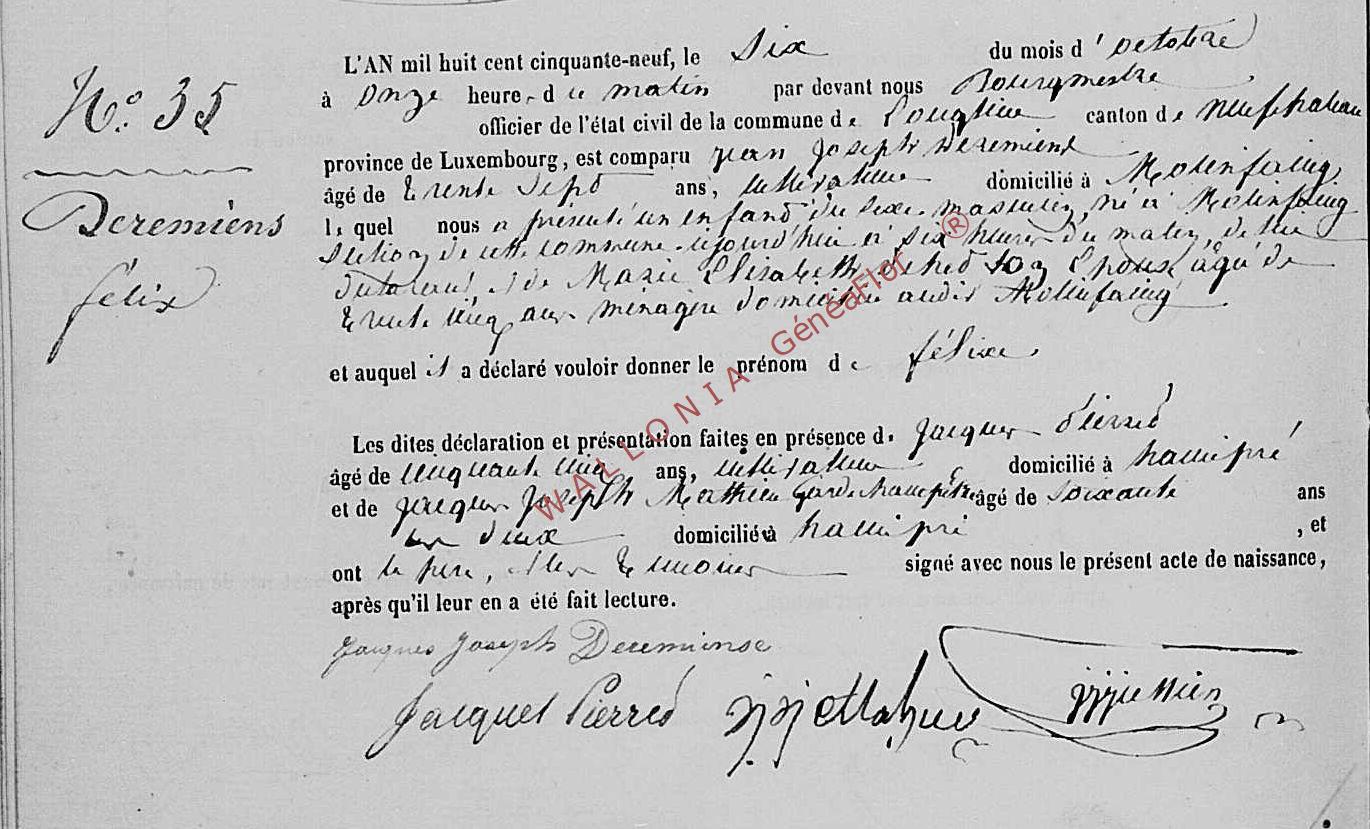 N.° 35
Deremiens
félix
L'AN mil huit cent cinquante-neuf, le Six du mois d' octobre
à Onze heure, d u matin par devant nous Bourgmestre
officier de l'état civil de la commune de Longlier canton de neufchateau
province de Luxembourg, est comparu Jean Joseph Deremiens
âgé de trente Sept ans, cultivateur domicilié à Molinfaing
le quel nous a présenté un enfant du sexe masculin, né à Molinfaing
Section de cette commune aujourd'hui à six heures du matin, de lui
déclarant, et de Marie Elisabeth Son Epouse âgé de
trente cinq ans ménagère domicilié audit Molinfaing
et auquel il a déclaré vouloir donner le prénom de félix.
Les dites déclaration et présentation faites en présence de Jacques Pierred
âgé de cinquante cinq ans, cultivateur domicilié à hamipré
et de Jacques Joseph Mathieu Garde champêtre âgé de Soixante ans
deux domicilié à hamipré , et
ont le père, et les témoins signé avec nous le présent acte de naissance,
après qu'il leur en a été fait lecture.
Jacques Joseph Deremiense
Jacques Pierred
WALLONIA GénéaFlor ®